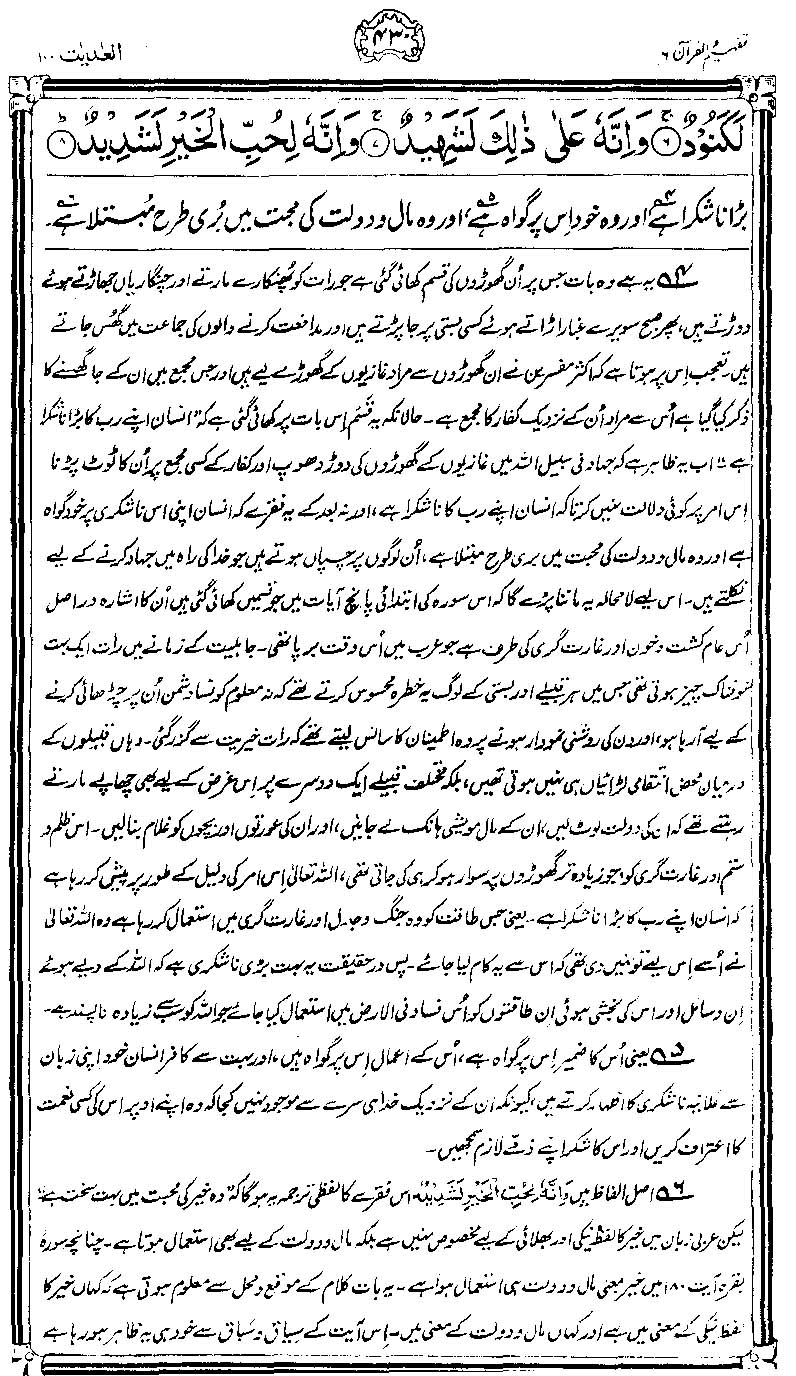 تفہیم القرآن ۶
۴۳۰
العٰدیٰت ۱۰۰
لَكَنُوْدٌ ۝۶ وَاِنَّهٗ عَلٰى ذٰلِكَ لَشَهِيْدٌ ۝۷ وَاِنَّهٗ لِحُبِّ الْخَيْرِ لَشَدِيْدٌ ۝۸
بڑا ناشکرا ہے،۴ اور وہ خود اِس پر گواہ ہے،۵ اور وہ مال و دولت کی محبت میں بُری طرح مُبتلا ہے۔۶
۴ یہ ہے وہ بات جس پر اُن گھوڑوں کی قسم کھائی گئی ہے جو رات کو پُھنکارے مارتے اور چنگاریاں جھاڑتے ہوئے
دوڑتے ہیں، پھر صبح سویرے غبار اڑاتے ہوئے کسی بستی پر جا پڑتے ہیں اور مدافعت کرنے والوں کی جماعت میں گھُس جاتے
ہیں۔ تعجب اِس پر ہوتا ہے کہ اکثر مفسرین نے ان گھوڑوں سے مراد غازیوں کے گھوڑے لیے ہیں اور جس مجمع میں ان کے جا گھسنے کا
ذکر کیا گیا ہے اُس سے مراد اُن کے نزدیک کفار کا مجمع ہے۔ حالانکہ یہ قسَم اِس بات پر کھائی گئی ہے کہ "انسان اپنے رب کا بڑا ناشکرا
ہے"۔ اب یہ ظاہر ہے کہ جہاد فی سبیل اللہ میں غازیوں کے گھوڑوں کی دوڑ دھوپ اور کفار کے کسی مجمع پر اُن کا ٹوٹ پڑنا
اِس امر پر کوئی دلالت نہیں کرتا کہ انسان اپنے رب کا ناشکرا ہے، اور نہ بعد کے یہ فقرے کہ انسان اپنی اس ناشکری پر خود گواہ
ہے اور وہ مال و دولت کی محبت میں بری طرح مبتلا ہے، اُن لوگوں پر چسپاں ہوتے ہیں جو خدا کی راہ میں جہاد کرنے کے لیے
نکلتے ہیں۔ اس لیے لامحالہ یہ ماننا پڑے گا کہ اس سورہ کی ابتدائی پانچ آیات میں جو قسمیں کھائی گئی ہیں اُن کا اشارہ دراصل
اُس عام کشت و خون اور غارت گری کی طرف ہے جو عرب میں اُس وقت برپا تھی۔ جاہلیت کے زمانے میں رات ایک بہت
خوفناک چیز ہوتی تھی جس میں ہر قبیلے اور بستی کے لوگ یہ خطرہ محسوس کرتے تھے کہ نہ معلوم کونسا دشمن اُن پر چڑھائی کرنے
کے لیے آ رہا ہو، اور دن کی روشنی نمودار ہونے پر وہ اطمینان کا سانس لیتے تھے کہ رات خیریت سے گزر گئی۔ وہاں قبیلوں کے
درمیان محض انتقامی لڑائیاں ہی نہیں ہوتی تھیں، بلکہ مختلف قبیلے ایک دوسرے پر اِس غرض کے لیے بھی چھاپے مارتے
رہتے تھے کہ ان کی دولت لوٹ لیں، ان کے مال مویشی ہانک لے جائیں، اور ان کی عورتوں اور بچوں کو غلام بنا لیں۔ اس ظلم و
ستم اور غارت گری کو، جو زیادہ تر گھوڑوں پر سوار ہو کر ہی کی جاتی تھی، اللہ تعالیٰ اِس امر کی دلیل کے طور پر پیش کر رہا ہے
کہ انسان اپنے رب کا بڑا ناشکرا ہے۔ یعنی جس طاقت کو وہ جنگ و جدل اور غارت گری میں استعمال کر رہا ہے وہ اللہ تعالیٰ
نے اُسے اِس لیے تو نہیں دی تھی کہ اس سے یہ کام لیا جائے۔ پس درحقیقت یہ بہت بڑی ناشکری ہے کہ اللہ کے دیے ہوئے
اِن وسائل اور اس کی بخشی ہوئی ان طاقتوں کو اُس فساد فی الارض میں استعمال کیا جائے جو اللہ کو سب سے زیادہ ناپسند ہے۔
۵ یعنی اُس کا ضمیر اِس پر گواہ ہے، اُس کے اعمال اِس پر گواہ ہیں، اور بہت سے کافر انسان خود اپنی زبان
سے علانیہ ناشکری کا اظہار کرتے ہیں، کیونکہ ان کے نزدیک خدا ہی سرے سے موجود نہیں کجا کہ وہ اپنے اوپر اس کی کسی نعمت
کا اعتراف کریں اور اس کا شکر اپنے ذمے لازم سمجھیں۔
۶ اصل الفاظ ہیں وَاِنَّهٗ لِحُبِّ الْخَيْرِ لَشَدِيْدٌ۔ اس فقرے کا لفظی ترجمہ یہ ہوگا کہ "وہ خیر کی محبت میں بہت سخت ہے"۔
لیکن عربی زبان میں خیر کا لفظ نیکی اور بھلائی کے لیے مخصوص نہیں ہے بلکہ مال و دولت کے لیے بھی استعمال ہوتا ہے۔ چنانچہ سورۂ
بقرہ آیت ۱۸۰ میں خیر بمعنی مال و دولت ہی استعمال ہوا ہے۔ یہ بات کلام کے موقع و محل سے معلوم ہوتی ہے کہ کہاں خیر کا
لفظ نیکی کے معنی میں ہے اور کہاں مال و دولت کے معنی میں۔ اِس آیت کے سیاق و سباق سے خود ہی یہ ظاہر ہو رہا ہے